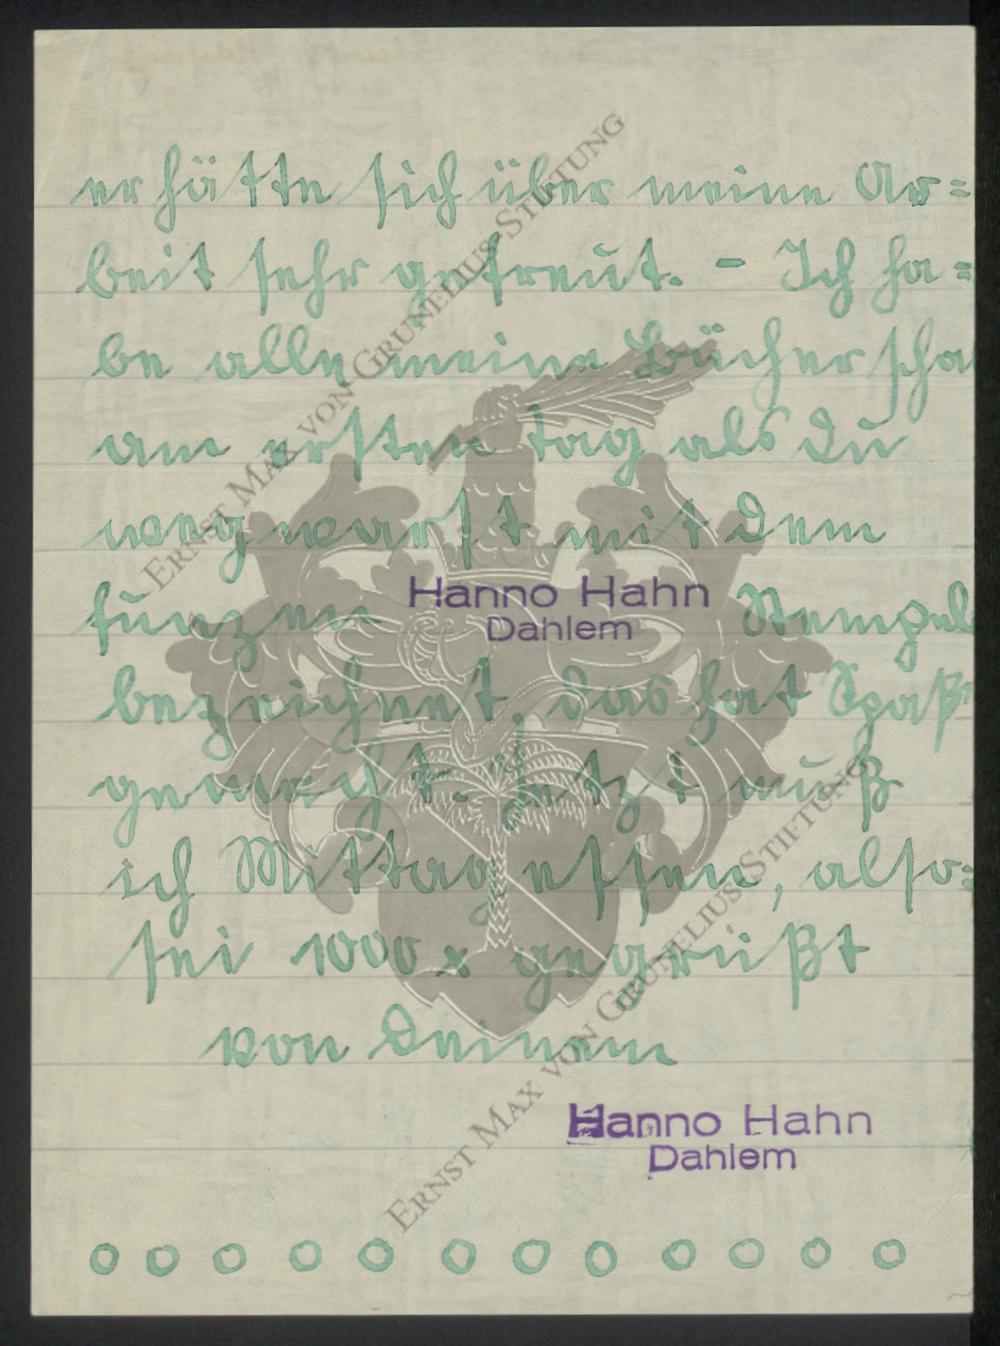 er hätte sich über meine Ar=
beit sehr gefreut. - Ich ha=
be alle meine Bücher scho
am ersten tag als du
weg warst mit dem
Hanno Hahn
Dahlem
Stempel
bezeichnet, das hat Spaß
gemacht. Jetzt muß
ich Mittag essen, also:
sei 1000 x gegrüßt
von Deinem
Hanno Hahn
Dahlem
ERNST MAX VON GRUNELIUS-STIFTUNG
ERNST MAX VON GRUNELIUS-STIFTUNG